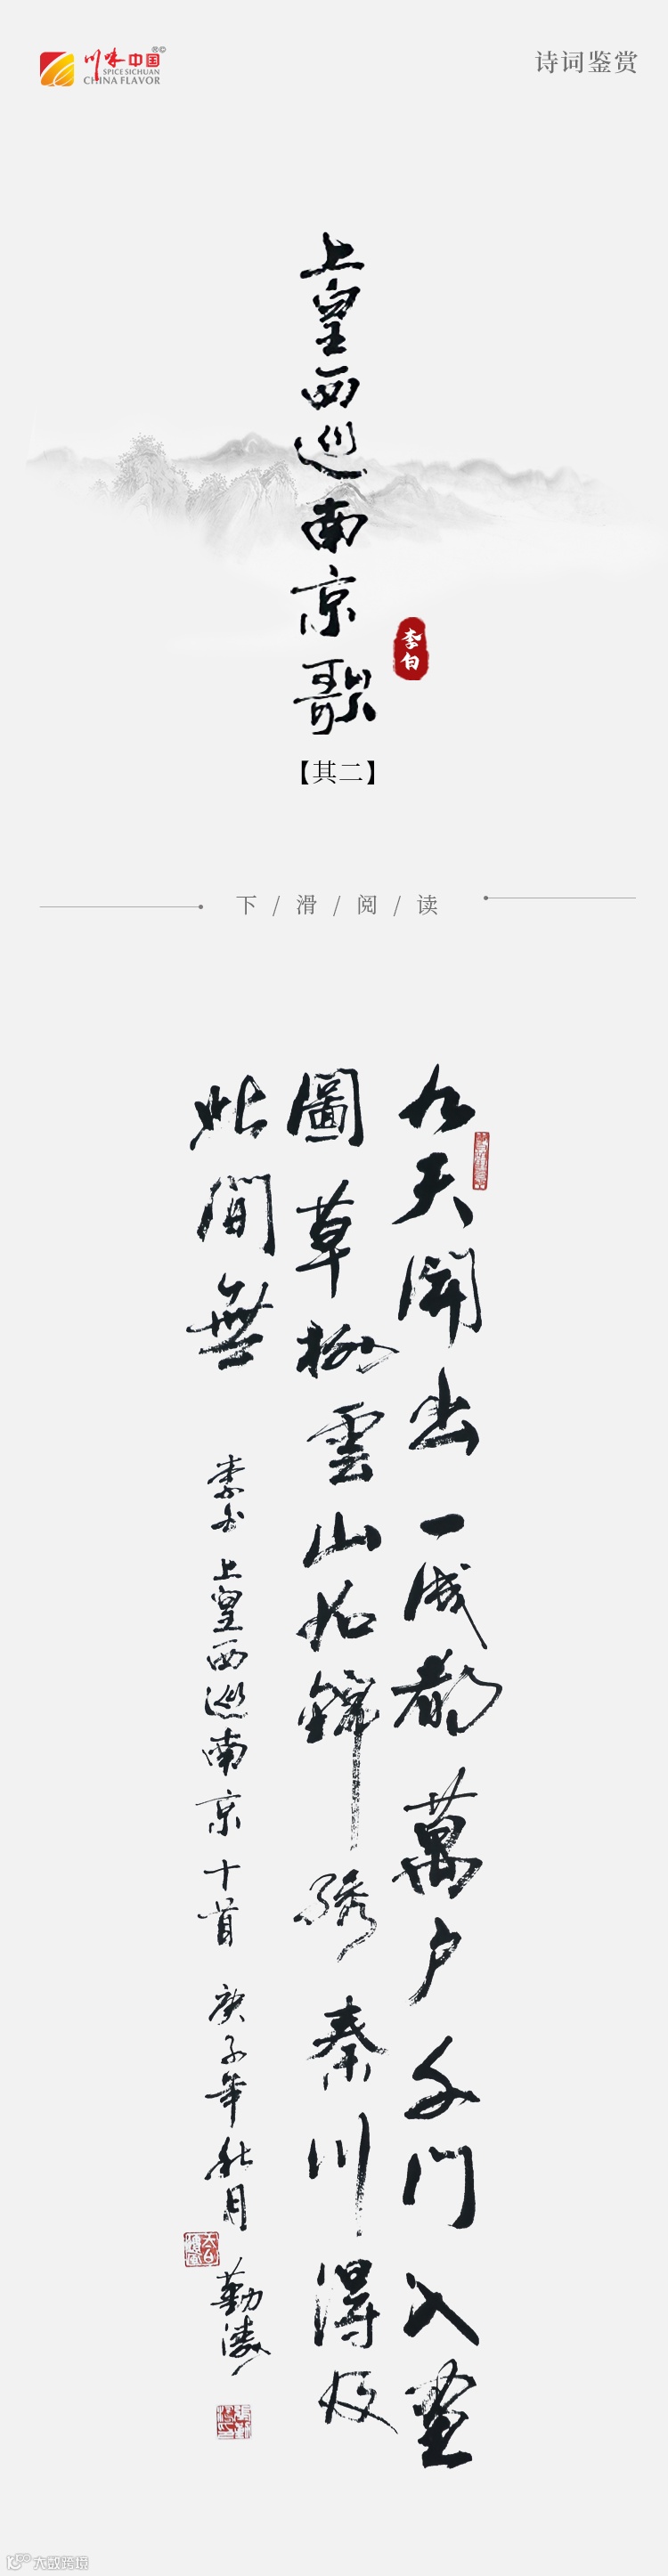 川味中国®©
SPICE SICHUAN
CHINA FLAVOR
诗词鉴赏
上皇西巡南京歌
李白
【其二】
下/滑/阅/读
九天開出一成都萬户千門入畫
圖草樹雲山如錦繡秦川得及
此間無
李白上皇西巡南京十首 庚子年秋月
大数跨境